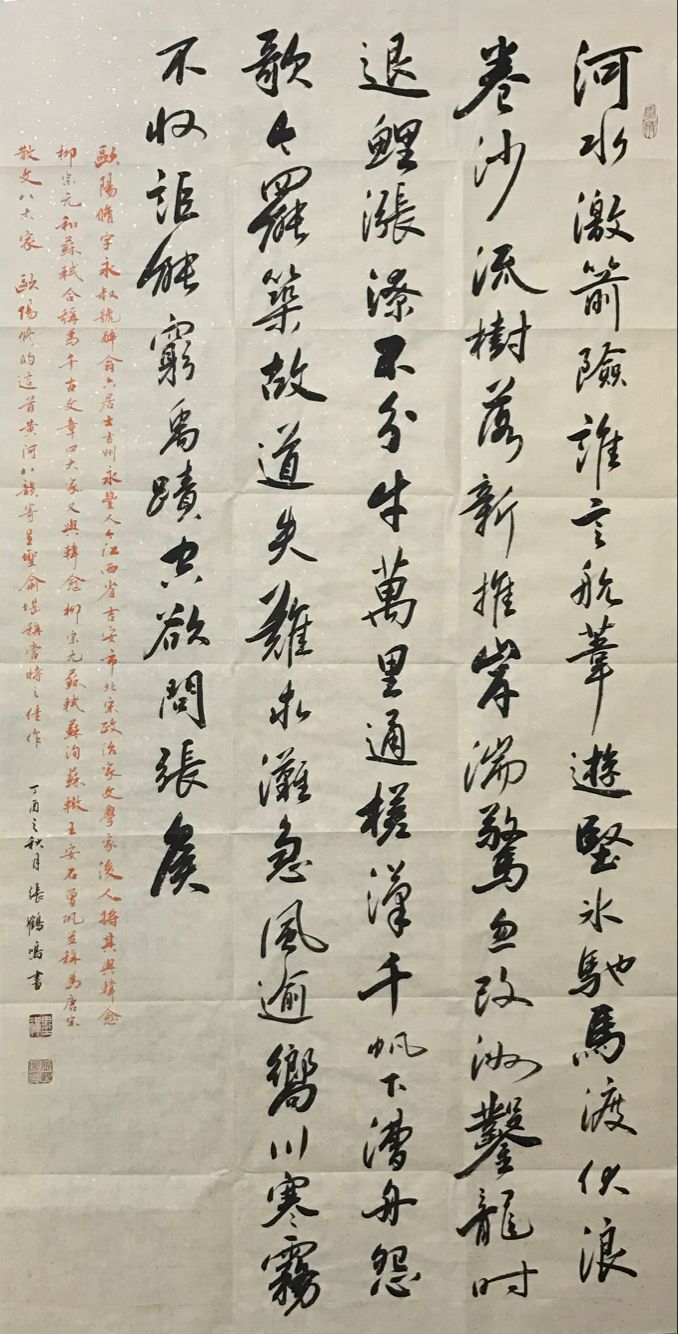 河水激箭險誰言航葦遊堅冰馳馬渡伏浪
卷沙流樹落新推岸湍驚忽改洲鑿龍時
退鯉漲潦不分牛萬里通槎漢千帆下漕舟怨
歌今罷築故道失難求灘急風逾響川寒霧
不收詎能窮禹蹟空欲問張矦
歐陽脩字永叔號醉翁六居士吉州永豐人今江西省吉安市北宋政治家文學家後人將其與韓愈
柳宗元和蘇軾合稱為千古文章四大家又與韓愈柳宗元蘇軾蘇洵蘇轍王安石曾鞏並稱為唐宋
散文八大家 歐陽脩的這首黃河八韻寄呈聖俞堪稱當時之佳作
丁酉之秋月張鶴鳴書